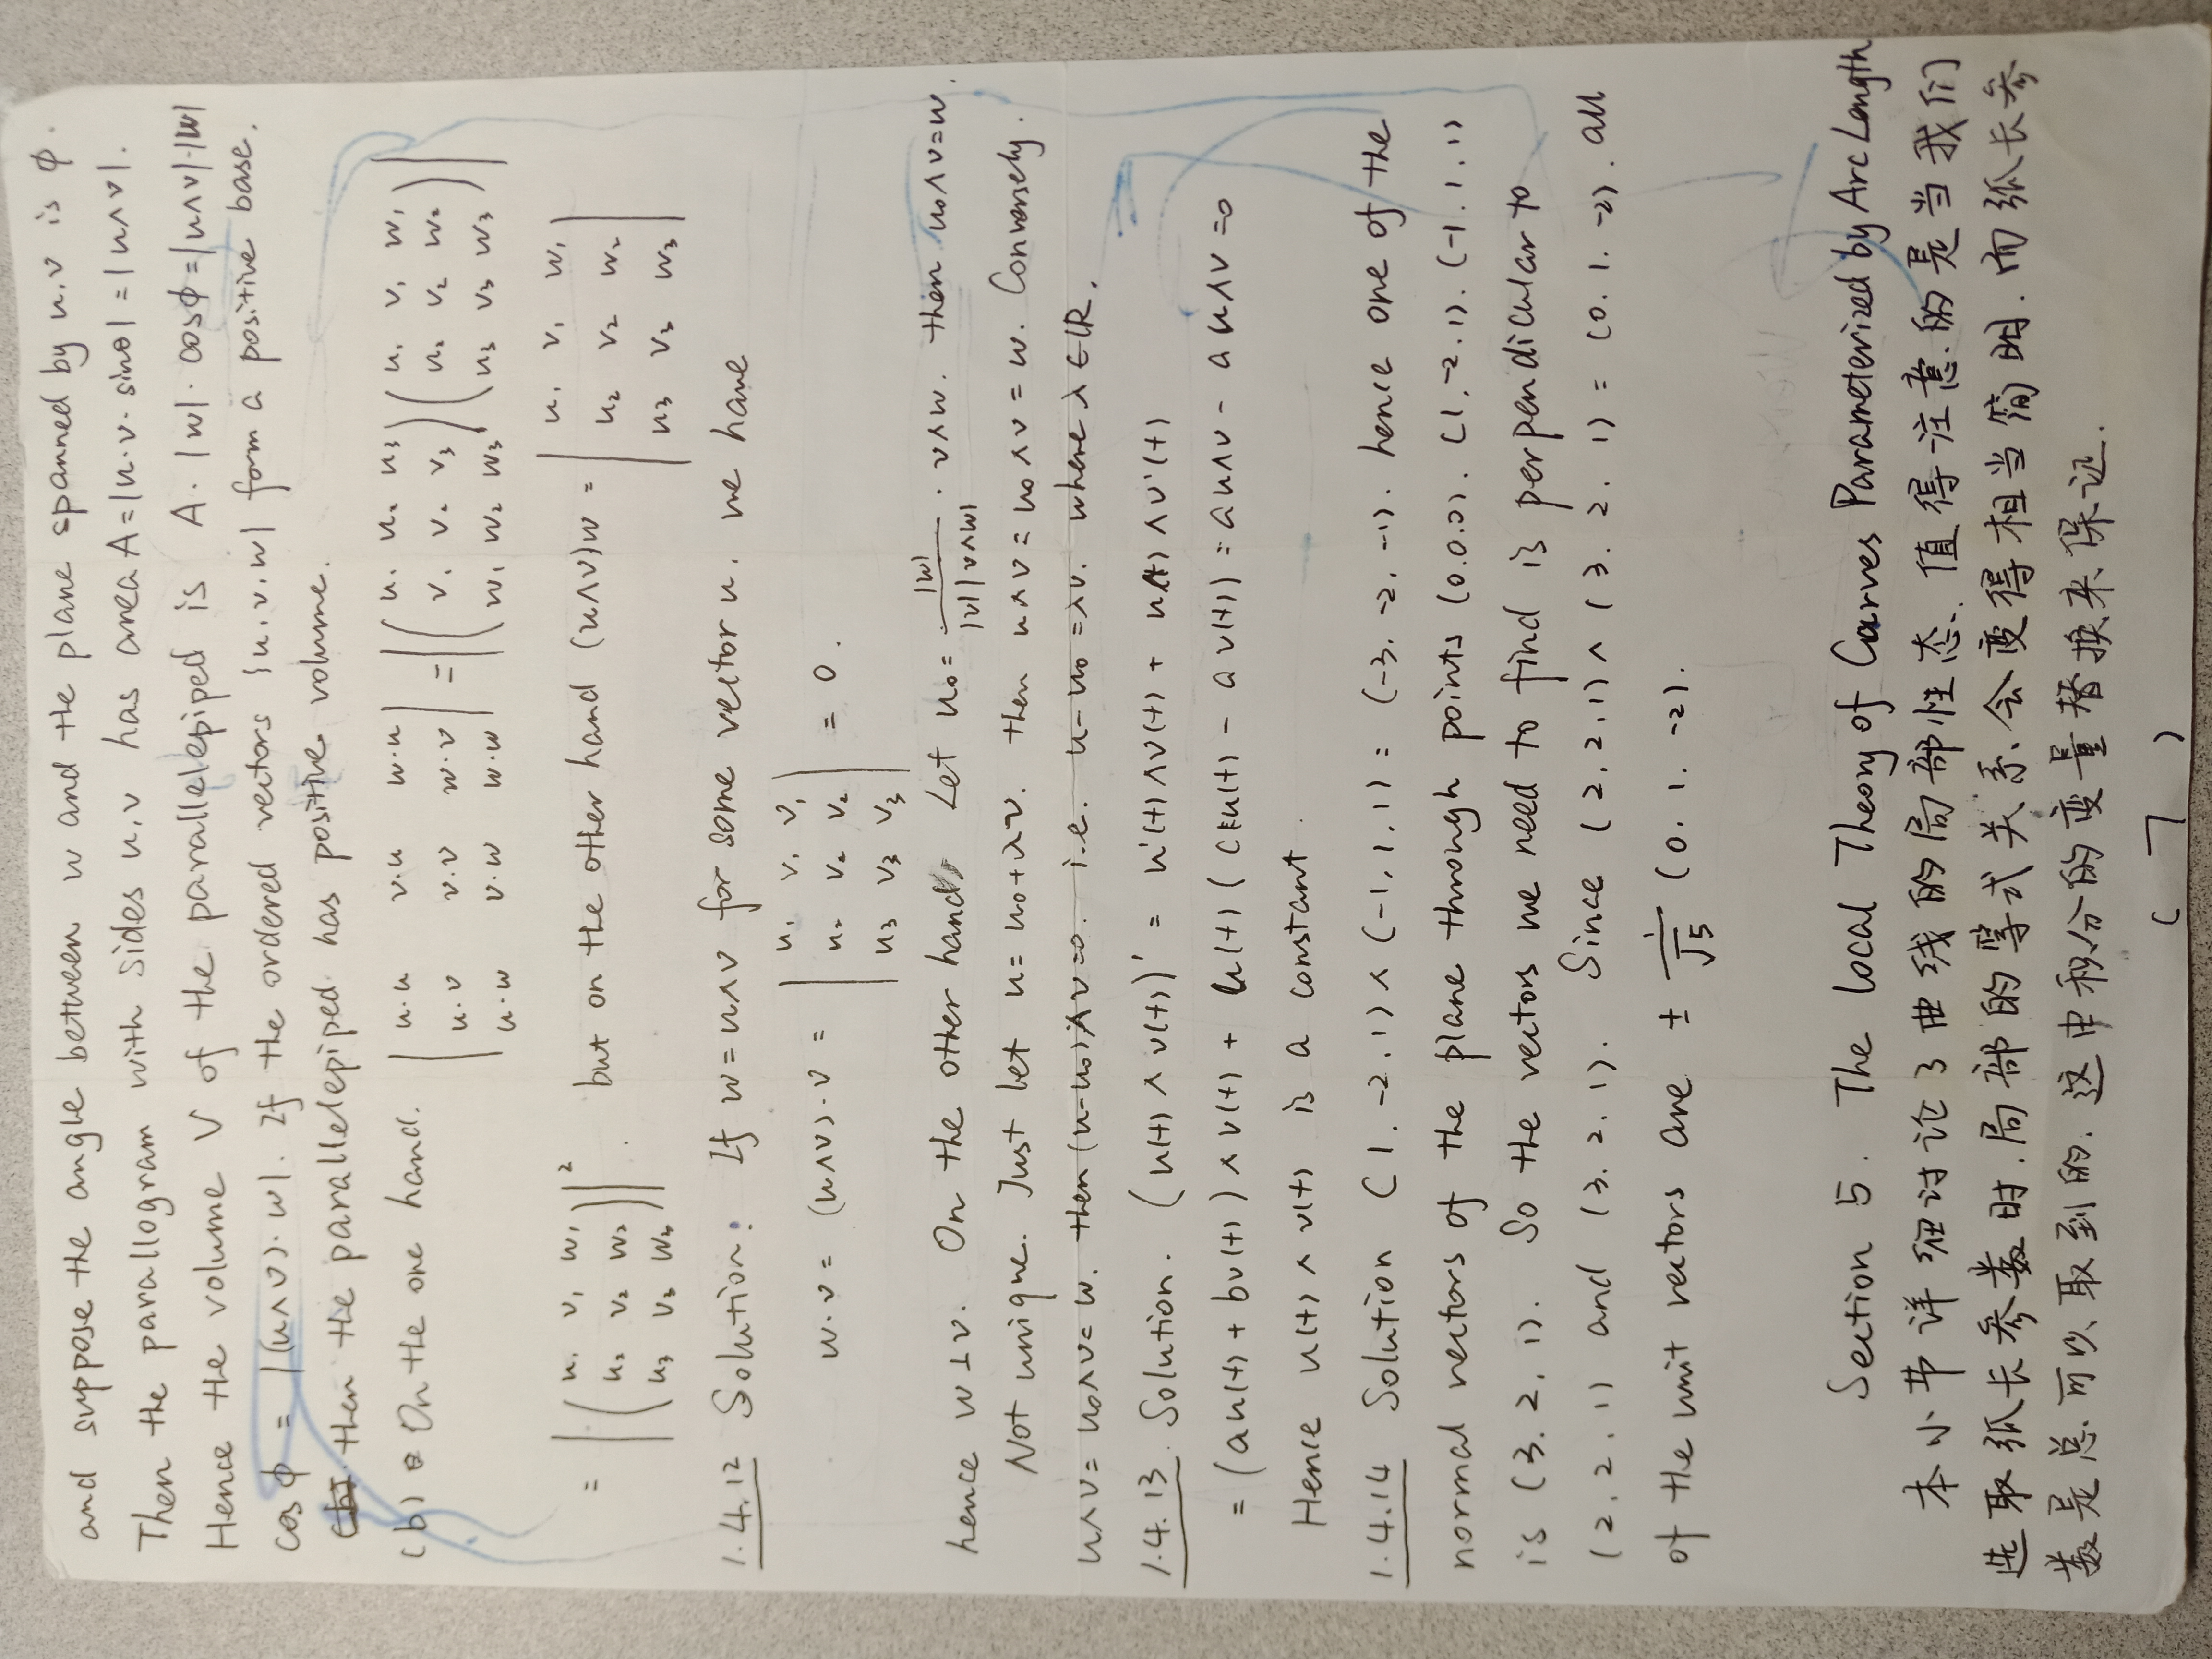 and suppose the angle between w and the plane spanned by u.v is ϕ.
Then the parallogram with sides u.v has area A=|u·v·sinθ|=|u∧v|.
Hence the volume V of the parallelepiped is A·|w|·cosϕ=|u∧v|·|w|
cosϕ = |(u∧v)·w|. If the ordered vectors {u.v.w} form a positive base.
then the parallelepiped has positive volume.
(b) On the one hand. | u·u v·u w·u ; u·v v·v w·v ; u·w v·w w·w | = |( u₁ u₂ u₃ ; v₁ v₂ v₃ ; w₁ w₂ w₃ )( u₁ v₁ w₁ ; u₂ v₂ w₂ ; u₃ v₃ w₃ )|
= |( u₁ v₁ w₁ ; u₂ v₂ w₂ ; u₃ v₃ w₃ )|². but on the other hand (u∧v)w = | u₁ v₁ w₁ ; u₂ v₂ w₂ ; u₃ v₃ w₃ |
1.4.12 Solution: If w=u∧v for some vector u. we have
w·v = (u∧v)·v = | u₁ v₁ v₁ ; u₂ v₂ v₂ ; u₃ v₃ v₃ | = 0.
hence w⊥v. On the other hand, Let u₀= |w| / |v||v∧w| · v∧w. then u₀∧v=w.
Not unique. Just let u=u₀+λv. then u∧v=u₀∧v=w. Conversely.
u∧v=u₀∧v=w. then (u-u₀)∧v=0. i.e. u-u₀=λv. where λ∈ℝ.
1.4.13 Solution. (u(t)∧v(t))' = u'(t)∧v(t) + u(t)∧v'(t)
= (au(t)+bv(t))∧v(t) + u(t)(cu(t)-av(t)) = au∧v - au∧v =0
Hence u(t)∧v(t) is a constant.
1.4.14 Solution (1.-2.1)∧(-1.1.1) = (-3.-2.-1). hence one of the
normal vectors of the plane through points (0.0.0). (1.-2.1). (-1.1.1)
is (3.2.1). So the vectors we need to find is perpendicular to
(2.2.1) and (3.2.1). Since (2.2.1)∧(3.2.1) = (0.1.-2). all
of the unit vectors are ± 1/√5 (0.1.-2).
Section 5. The Local Theory of Curves Parameterized by Arc Length
本小节详细讨论了曲线的局部性态、值得注意的是当我们
选取弧长参数时.局部的等式关系会变得相当简明.而弧长参
数是总可以取到的.这由积分的变量替换来保证.
(7)